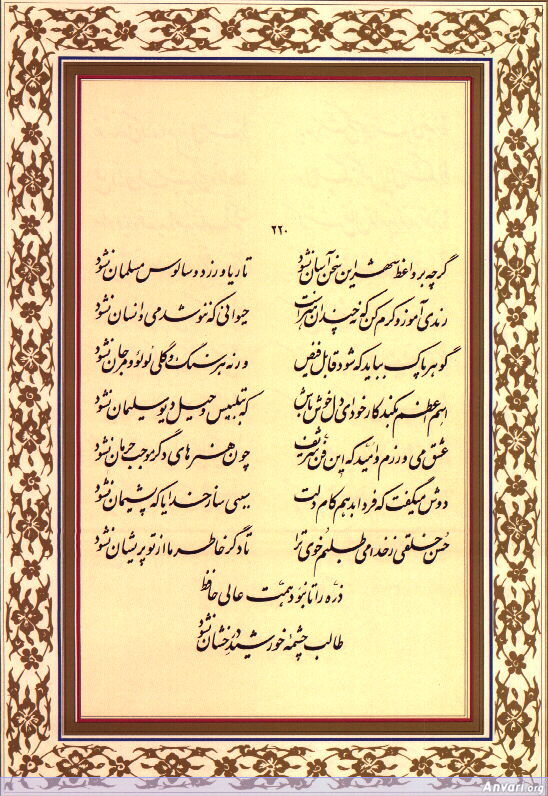 ۲۲۰
گرچه بر واعظ شهر این سخن آسان نشود تا ریا ورزد و سالوس مسلمان نشود
رندی آموز و کرم کن که نه چندان هنر است حیوانی که ننوشد می و انسان نشود
گوهر پاک بباید که شود قابل فیض ورنه هر سنگ و گلی لولو و مرجان نشود
اسم اعظم بکند کار خود ای دل خوش باش که به تلبیس و حیل دیو سلیمان نشود
عشق می ورزم و امید که این فن شریف چون هنرهای دگر موجب حرمان نشود
دوش میگفت که فردا بدهم کام دلت سببی ساز خدایا که پشیمان نشود
حسن خلقی ز خدا می طلبم خوی ترا تا دگر خاطر ما از تو پریشان نشود
ذره را تا نبود همت عالی حافظ
طالب چشمه خورشید درخشان نشود
Anvari.org